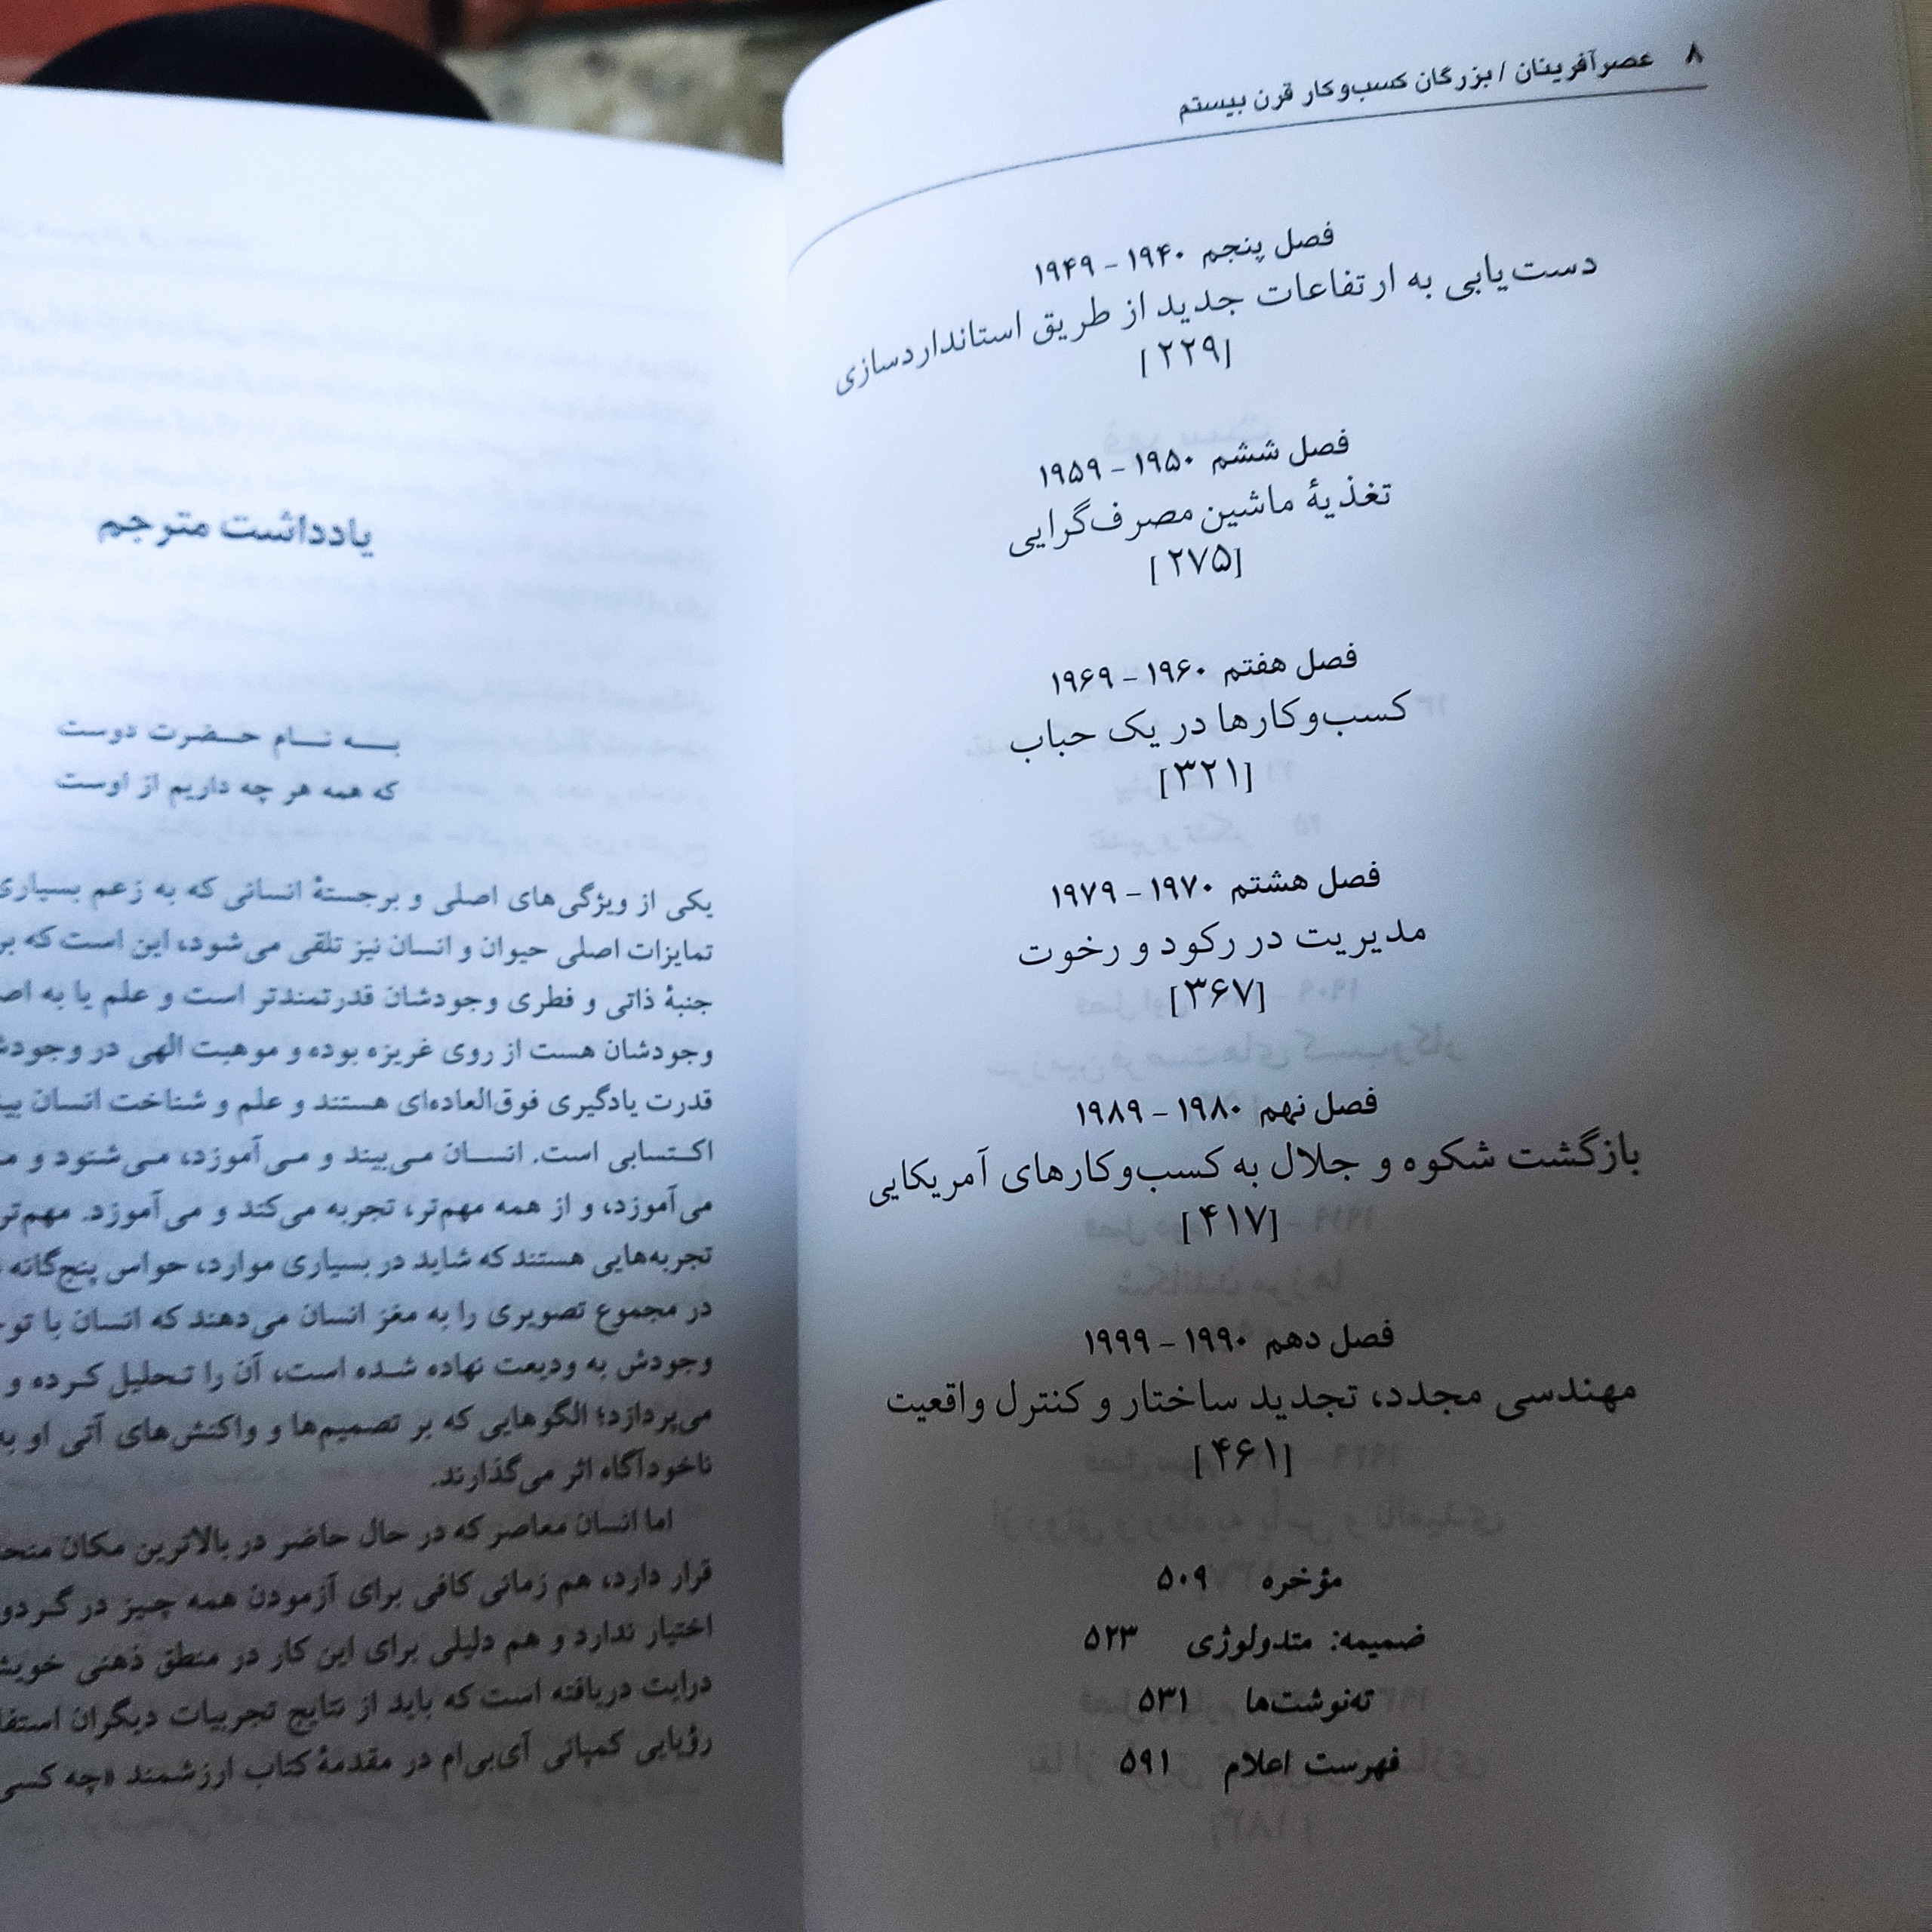 ۸ عصرآفرینان / بزرگان کسب‌وکار قرن بیستم
فصل پنجم ۱۹۴۰ - ۱۹۴۹
دست‌یابی به ارتفاعات جدید از طریق استانداردسازی
[۲۲۹]
فصل ششم ۱۹۵۰ - ۱۹۵۹
تغذیهٔ ماشین مصرف‌گرایی
[۲۷۵]
فصل هفتم ۱۹۶۰ - ۱۹۶۹
کسب‌وکارها در یک حباب
[۳۲۱]
فصل هشتم ۱۹۷۰ - ۱۹۷۹
مدیریت در رکود و رخوت
[۳۶۷]
فصل نهم ۱۹۸۰ - ۱۹۸۹
بازگشت شکوه و جلال به کسب‌وکارهای آمریکایی
[۴۱۷]
فصل دهم ۱۹۹۰ - ۱۹۹۹
مهندسی مجدد، تجدید ساختار و کنترل واقعیت
[۴۶۱]
مؤخره ۵۰۹
ضمیمه: متدولوژی ۵۲۳
ته‌نوشت‌ها ۵۳۱
فهرست اعلام ۵۹۱
یادداشت مترجم
بـــه نـــام حـــضرت دوست
که همه هر چه داریم از اوست
یکی از ویژگی‌های اصلی و برجستهٔ انسانی که به زعم بسیاری
تمایزات اصلی حیوان و انسان نیز تلقی می‌شود، این است که
جنبهٔ ذاتی و فطری وجودشان قدرتمندتر است و علم یا به
وجودشان هست از روی غریزه بوده و موهبت الهی در
قدرت یادگیری فوق‌العاده‌ای هستند و علم و شناخت انسان
اکتسابی است. انسان می‌بیند و می‌آموزد، می‌شنود و
می‌آموزد، و از همه مهم‌تر، تجربه می‌کند و می‌آموزد.
تجربه‌هایی هستند که شاید در بسیاری موارد، حواس پنج‌گانه
در مجموع تصویری را به مغز انسان می‌دهند که انسان با
وجودش به ودیعت نهاده شده است، آن را تحلیل کرده و
می‌پردازد؛ الگوهایی که بر تصمیم‌ها و واکنش‌های آتی او
ناخودآگاه اثر می‌گذارند.
اما انسان معاصر که در حال حاضر در بالاترین مکان
قرار دارد، هم زمانی کافی برای آزمودن همه چیز در
اختیار ندارد و هم دلیلی برای این کار در منطق ذهنی
درایت دریافته است که باید از نتایج تجربیات دیگران
رؤیایی کمپانی آی‌بی‌ام در مقدمهٔ کتاب ارزشمند «چه کسی